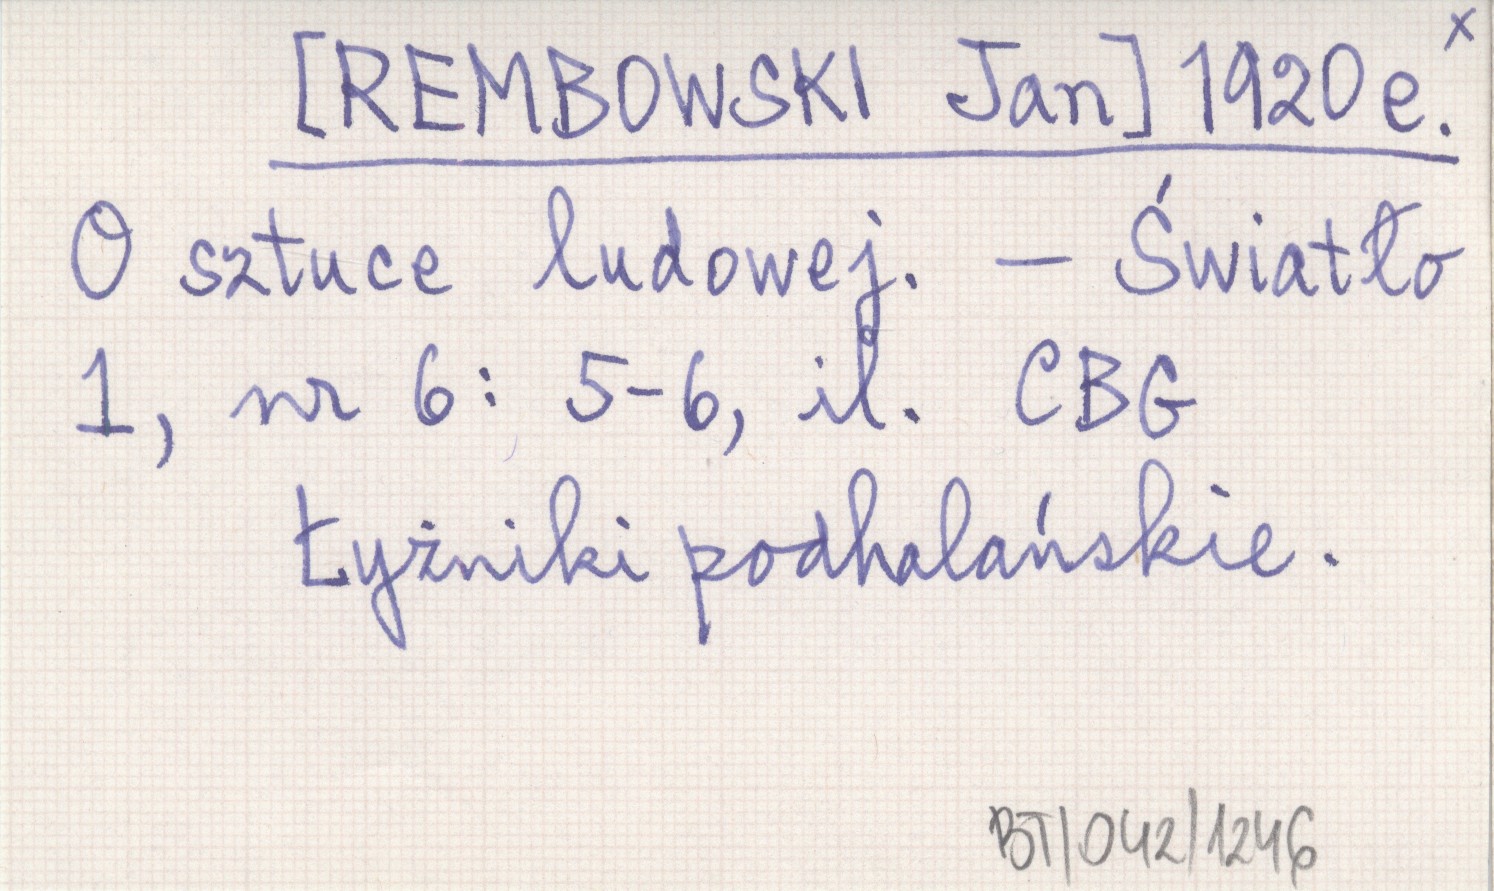 x
[REMBOWSKI Jan] 1920 e.
O sztuce ludowej. – Światło
1, nr 6: 5-6, il. CBG
Łyżniki podhalańskie.
BT/042/1246